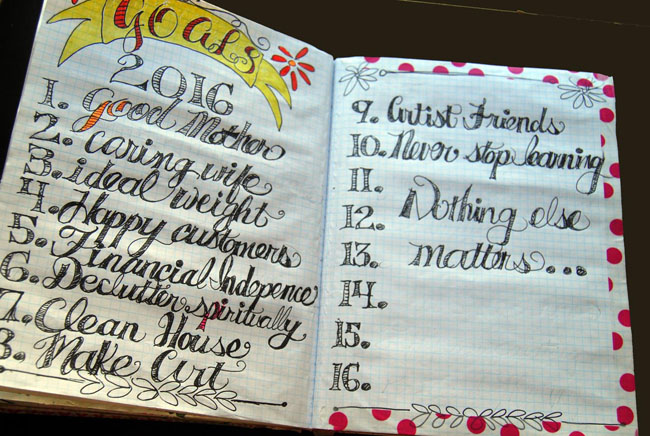 GOALS
2016
1. Good Mother
2. caring wife
3. ideal weight
4. Happy customers
5. Financial Indepence
6. Declutter spiritually
7. Clean House
8. Make Art
9. Artist Friends
10. Never stop learning
11.
12. Nothing else
13. matters...
14.
15.
16.